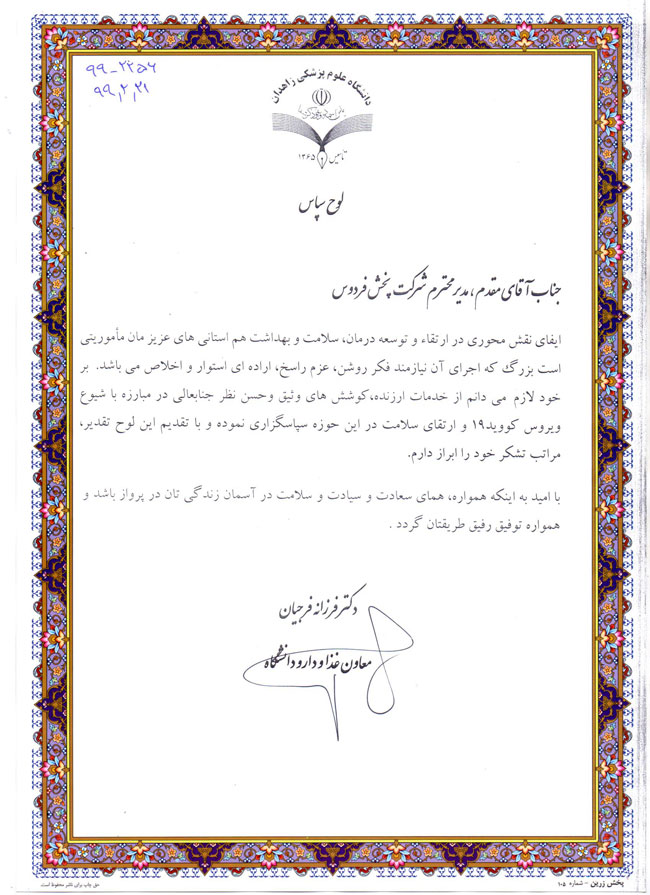 ۹۹-۲۳۵۶
۹۹,۲,۳۱
دانشگاه علوم پزشکی زاهدان
تاسیس ۱۳۶۵
لوح سپاس
جناب آقای مقدم، مدیر محترم شرکت پخش فردوس
ایفای نقش محوری در ارتقاء و توسعه درمان، سلامت و بهداشت هم استانی های عزیز مان مأموریتی
است بزرگ که اجرای آن نیازمند فکر روشن، عزم راسخ، اراده ای استوار و اخلاص می باشد. بر
خود لازم می دانم از خدمات ارزنده،کوشش های وثیق وحسن نظر جنابعالی در مبارزه با شیوع
ویروس کووید۱۹ و ارتقای سلامت در این حوزه سپاسگزاری نموده و با تقدیم این لوح تقدیر،
مراتب تشکر خود را ابراز دارم.
با امید به اینکه همواره، همای سعادت و سیادت و سلامت در آسمان زندگی تان در پرواز باشد و
همواره توفیق رفیق طریقتان گردد .
دکتر فرزانه فرجیان
معاون غذا و دارو دانشگاه
پخش زرین - شماره ۱۰۵
حق چاپ برای ناشر محفوظ است.